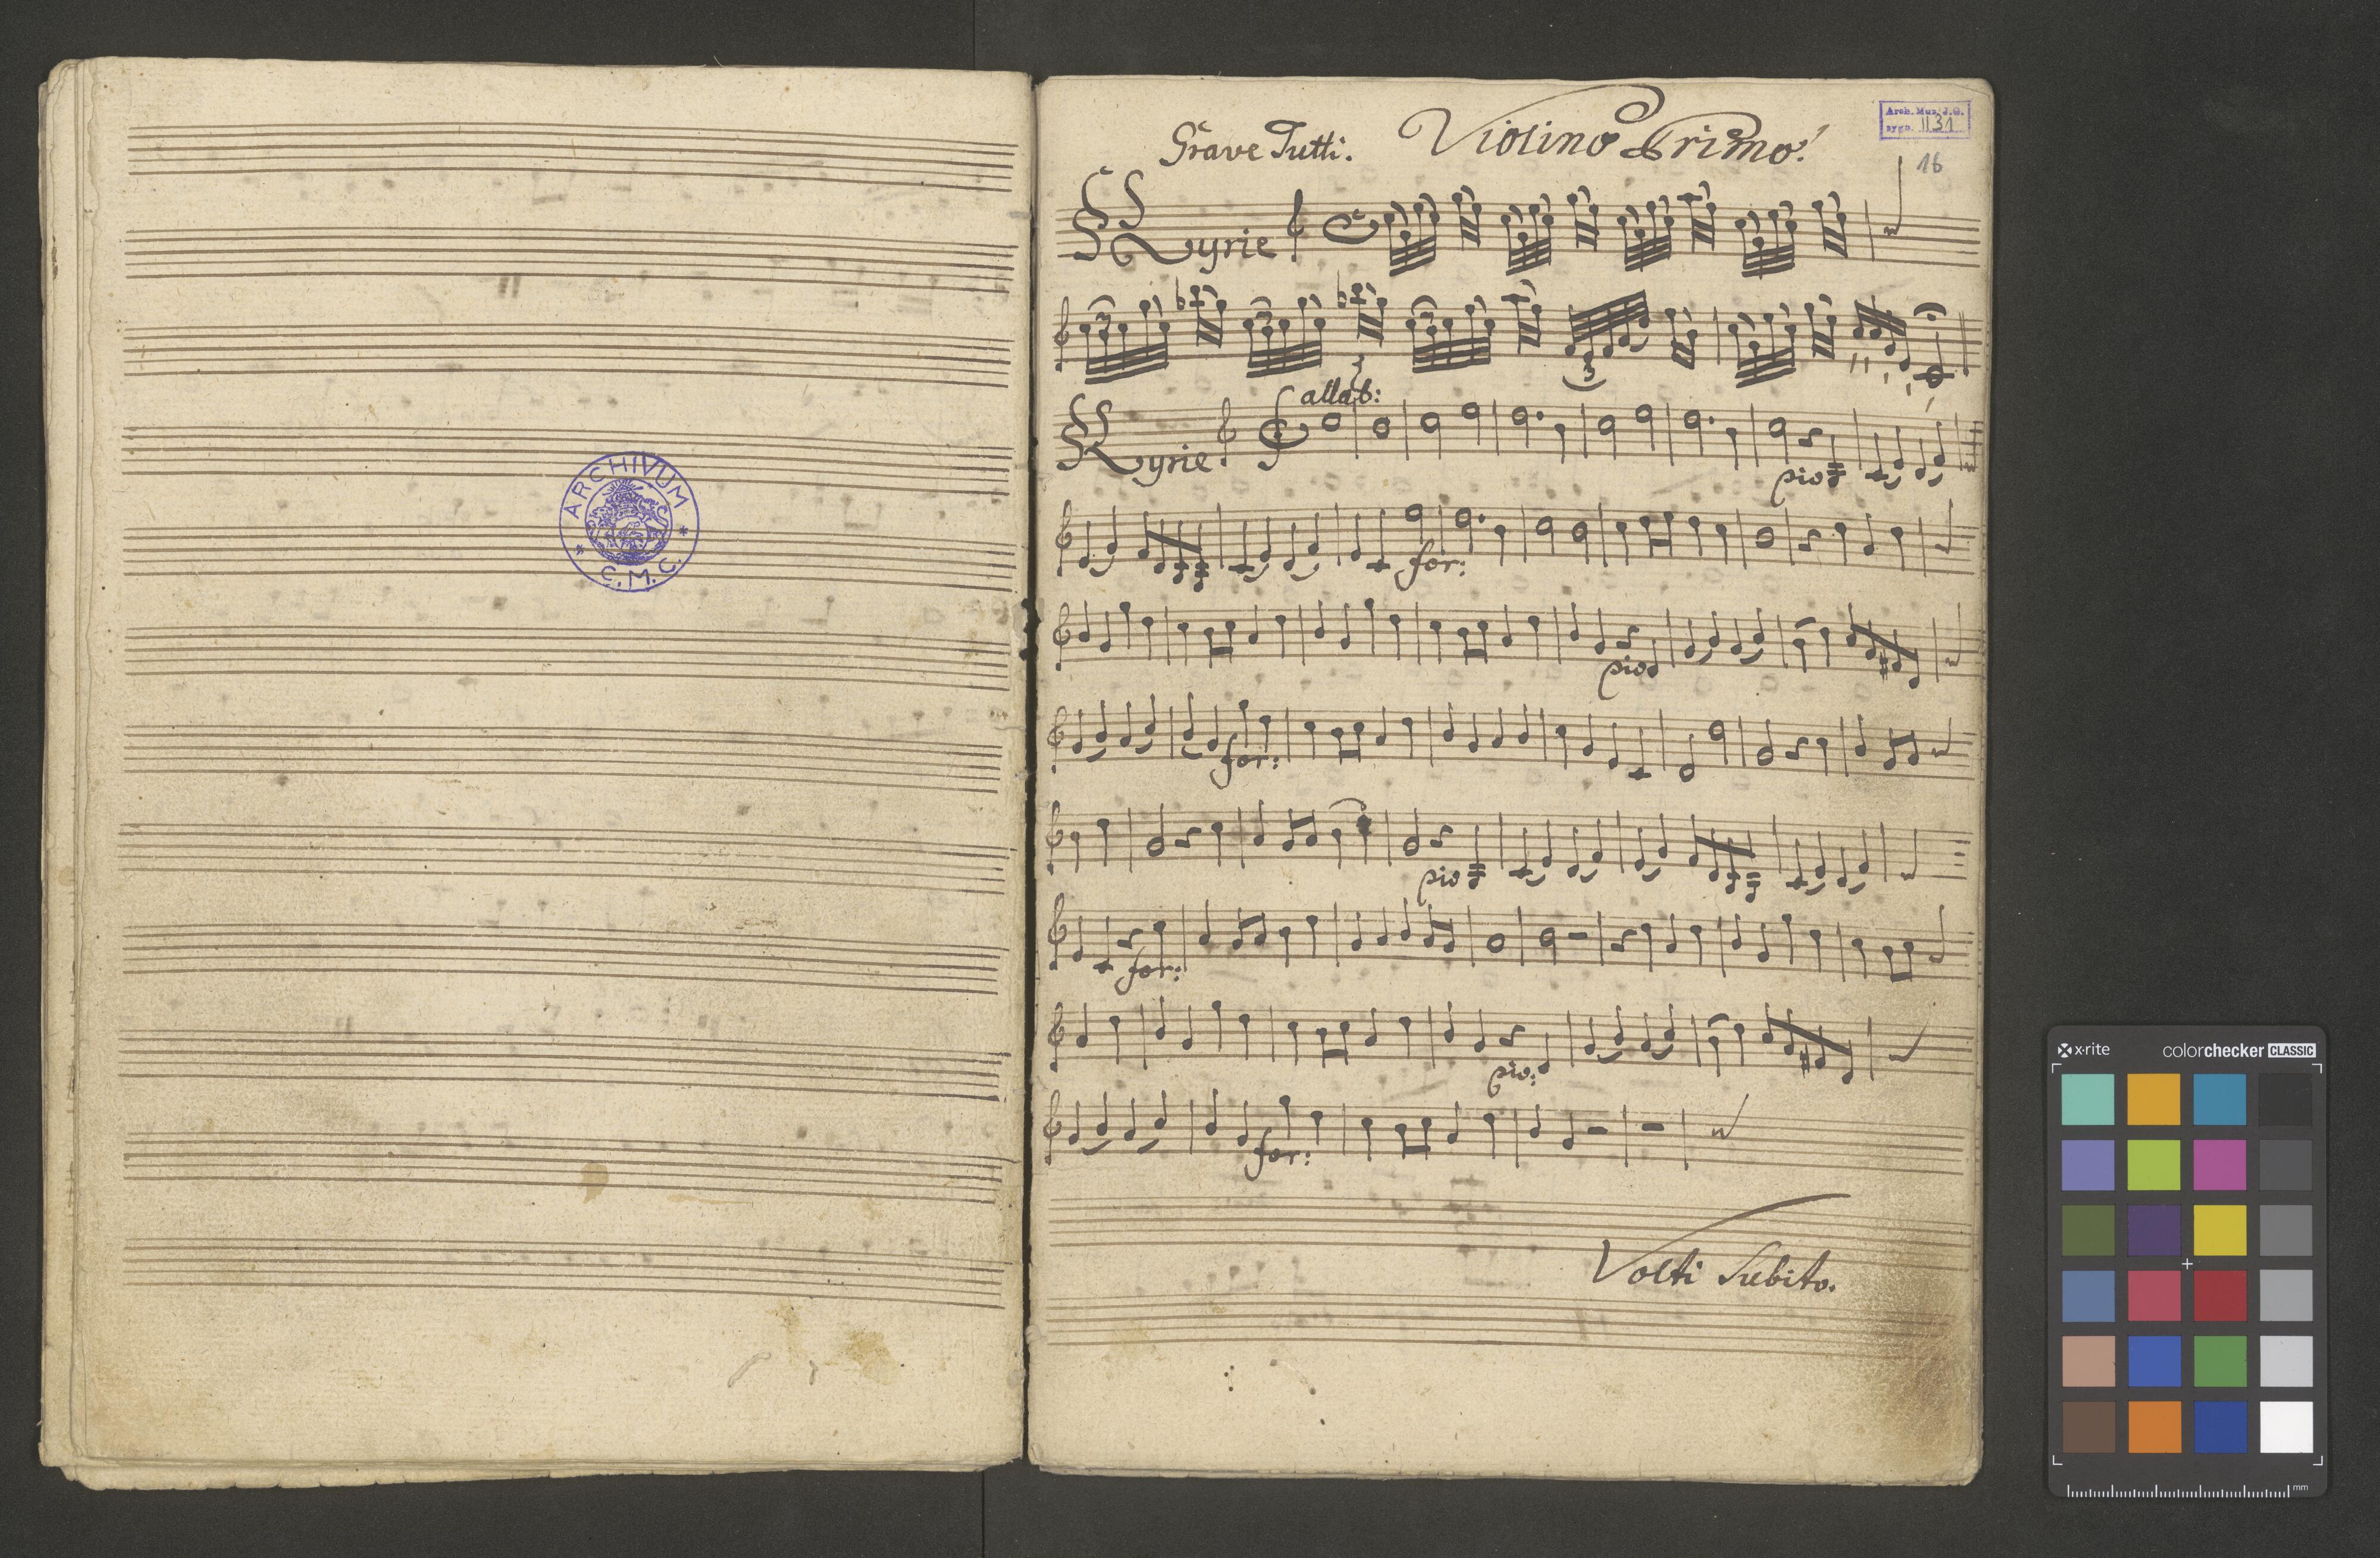 ARCHIVUM
C. M. C.
Grave Tutti. Violino Primo.
Arch. Mus. J. G.
sygn. II 31
16
Kyrie
3 3 3 3
allab:
Kyrie. pio
for:
pio
for:
pio
for:
pio:
for:
Volti Subito.
x·rite colorchecker CLASSIC
mm